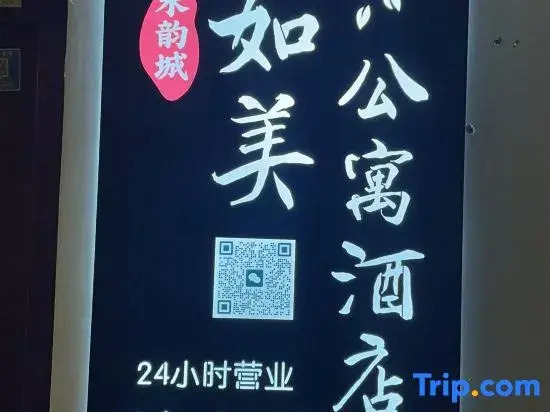 韵城
如美
公寓酒店
24小时营业
Trip.com